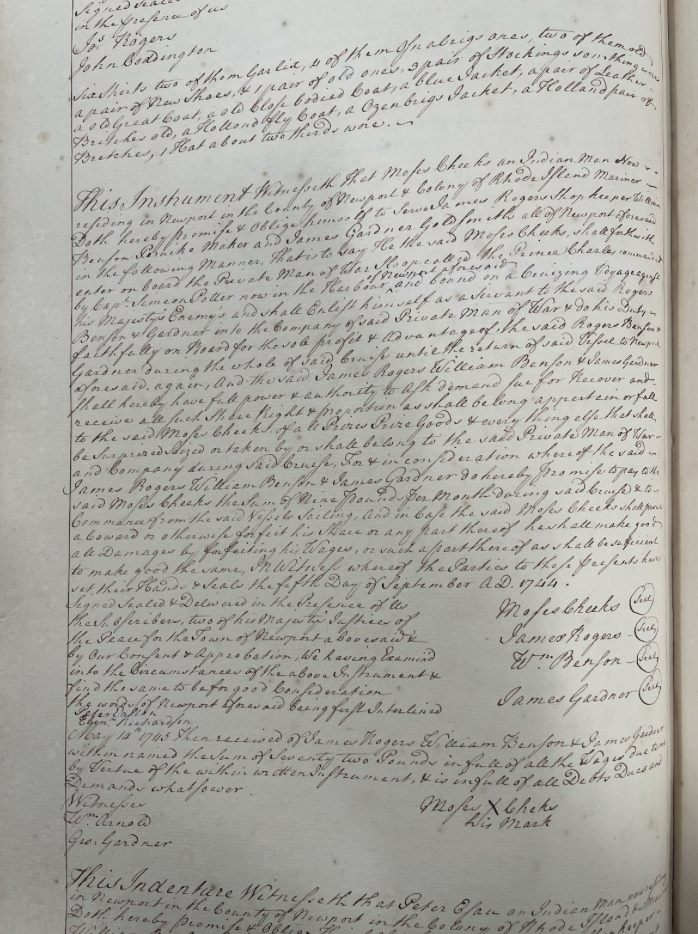 Signed Sealed
in the presence of us
Jos. Rogers
John Coddington
Six Shirts two of them Garlix, 4 of them Osnabrigs ones, two of them old
a pair of New Shoes, & 1 pair of old ones, 3 pair of Stockings something wore
a old Great Coat, a old Close bodied Coat, a blue Jacket, a pair of Leather
Britches old, a Holland fly Coat, a Ozenbrigs Jacket, a Holland pair of
Bretches, 1 Hat about two thirds wore.
This Instrument Witnesseth That Moses Cheeks an Indian Man Now
residing in Newport in the County of Newport & Colony of Rhode Island Mariner
Doth hereby Promise & Oblige himself to Serve James Rogers Shop keeper William
Benson Peruke Maker and James Gardner Goldsmith all of Newport aforesaid
in the following Manner, That is to say He the said Moses Cheeks, shall forthwith
enter on board the Private Man of War Sloop called the Prince Charles commanded
by Capt. Simeon Potter now in the Harbour of Newport aforesaid and bound on a Cruizing Voyage against
his Majestys Enemys and shall Enlist himself as a Servant to the said Rogers
Benson & Gardner into the Company of said Private Man of War & do his Duty
faithfully on Board for the sole profit & Advantage of the said Rogers Benson &
Gardner during the whole of said Cruise until the return of said Vessel to Newport
aforesaid, again, And the said James Rogers William Benson & James Gardner
shall hereby have full power & authority to Ask demand sue for Recover and
receive all such Share Right & proportion as shall belong appertain or fall
to the said Moses Cheeks of all Prizes Prize Goods & every thing else that shall
be Surprized seized or taken by or shall belong to the said Private Man of War
and Company during said Cruise, For & in consideration whereof the said
James Rogers William Benson & James Gardner do hereby promise to pay to the
said Moses Cheeks the Sum of Nine Pounds per Month During said Cruise & to
Commence from the said Vessels Sailing, And in Case the said Moses Cheeks shall prove
a Coward or otherwise forfeit his Share or any part thereof he shall make good
all Damages by forfeiting his Wages, or such a part there of as shall be sufficient
to make good the same, In Witness whereof the Parties to these Presents have
set their Hands & Seals the fifth Day of September A.D. 1744.
Signed Sealed & Delivered in the Presence of Us
the Subscribers, two of his Majesty Justices of
the Peace for the Town of Newport abovesaid &
by Our Consent & Approbation, We having Examind
into the Circumstances of the above Instrument &
find the same to be for good Consideration
the words of Newport aforesaid being first Interlined
Peter Easton
Eben. Richardson
Moses Cheeks Seal
James Rogers Seal
Wm. Benson Seal
James Gardner Seal
May 14th 1745 then received of James Rogers William Benson & James Gardner
within named the Sum of Seventy two Pounds in full of all the Wages due to me
by Virtue of the within written Instrument, & is in full of all Debts Dues and
Demands whatsoever
Witnesses
Wm. Arnold
Geo. Gardner
Moses X Cheks
his Mark
This Indenture Witnesseth that Peter Esau an Indian Man now residing
in Newport in the County of Newport in the Colony of Rhode Island &
Doth hereby Promise & Oblige